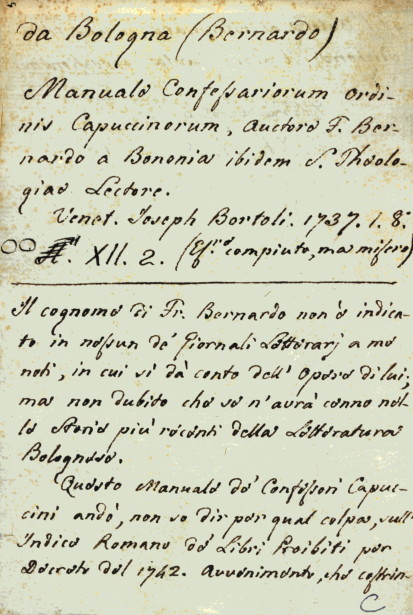 da Bologna (Bernardo)
Manuale Confessariorum Ordi-
nis Capuccinorum, Auctore F. Ber-
nardo a Bononia ibidem S. Theolo-
giae Lectore.
Venet. Joseph Bortoli. 1737. 1. 8.
XII. 2. (Es.re compiuto, ma misero)
Il cognome di Fr. Bernardo non è indica-
to in nessun de' Giornali Letterarj a me
noti, in cui si dà conto dell' Opere di lui,
ma non dubito che se n'avrà cenno nel-
le Storie più recenti della Letteratura
Bolognese.
Questo Manuale de' Confessori Capuc-
cini andò, non so dir per qual colpa, sull'
Indice Romano de' Libri Proibiti per
Decreto del 1742. Avvenimento, che costrin-
C